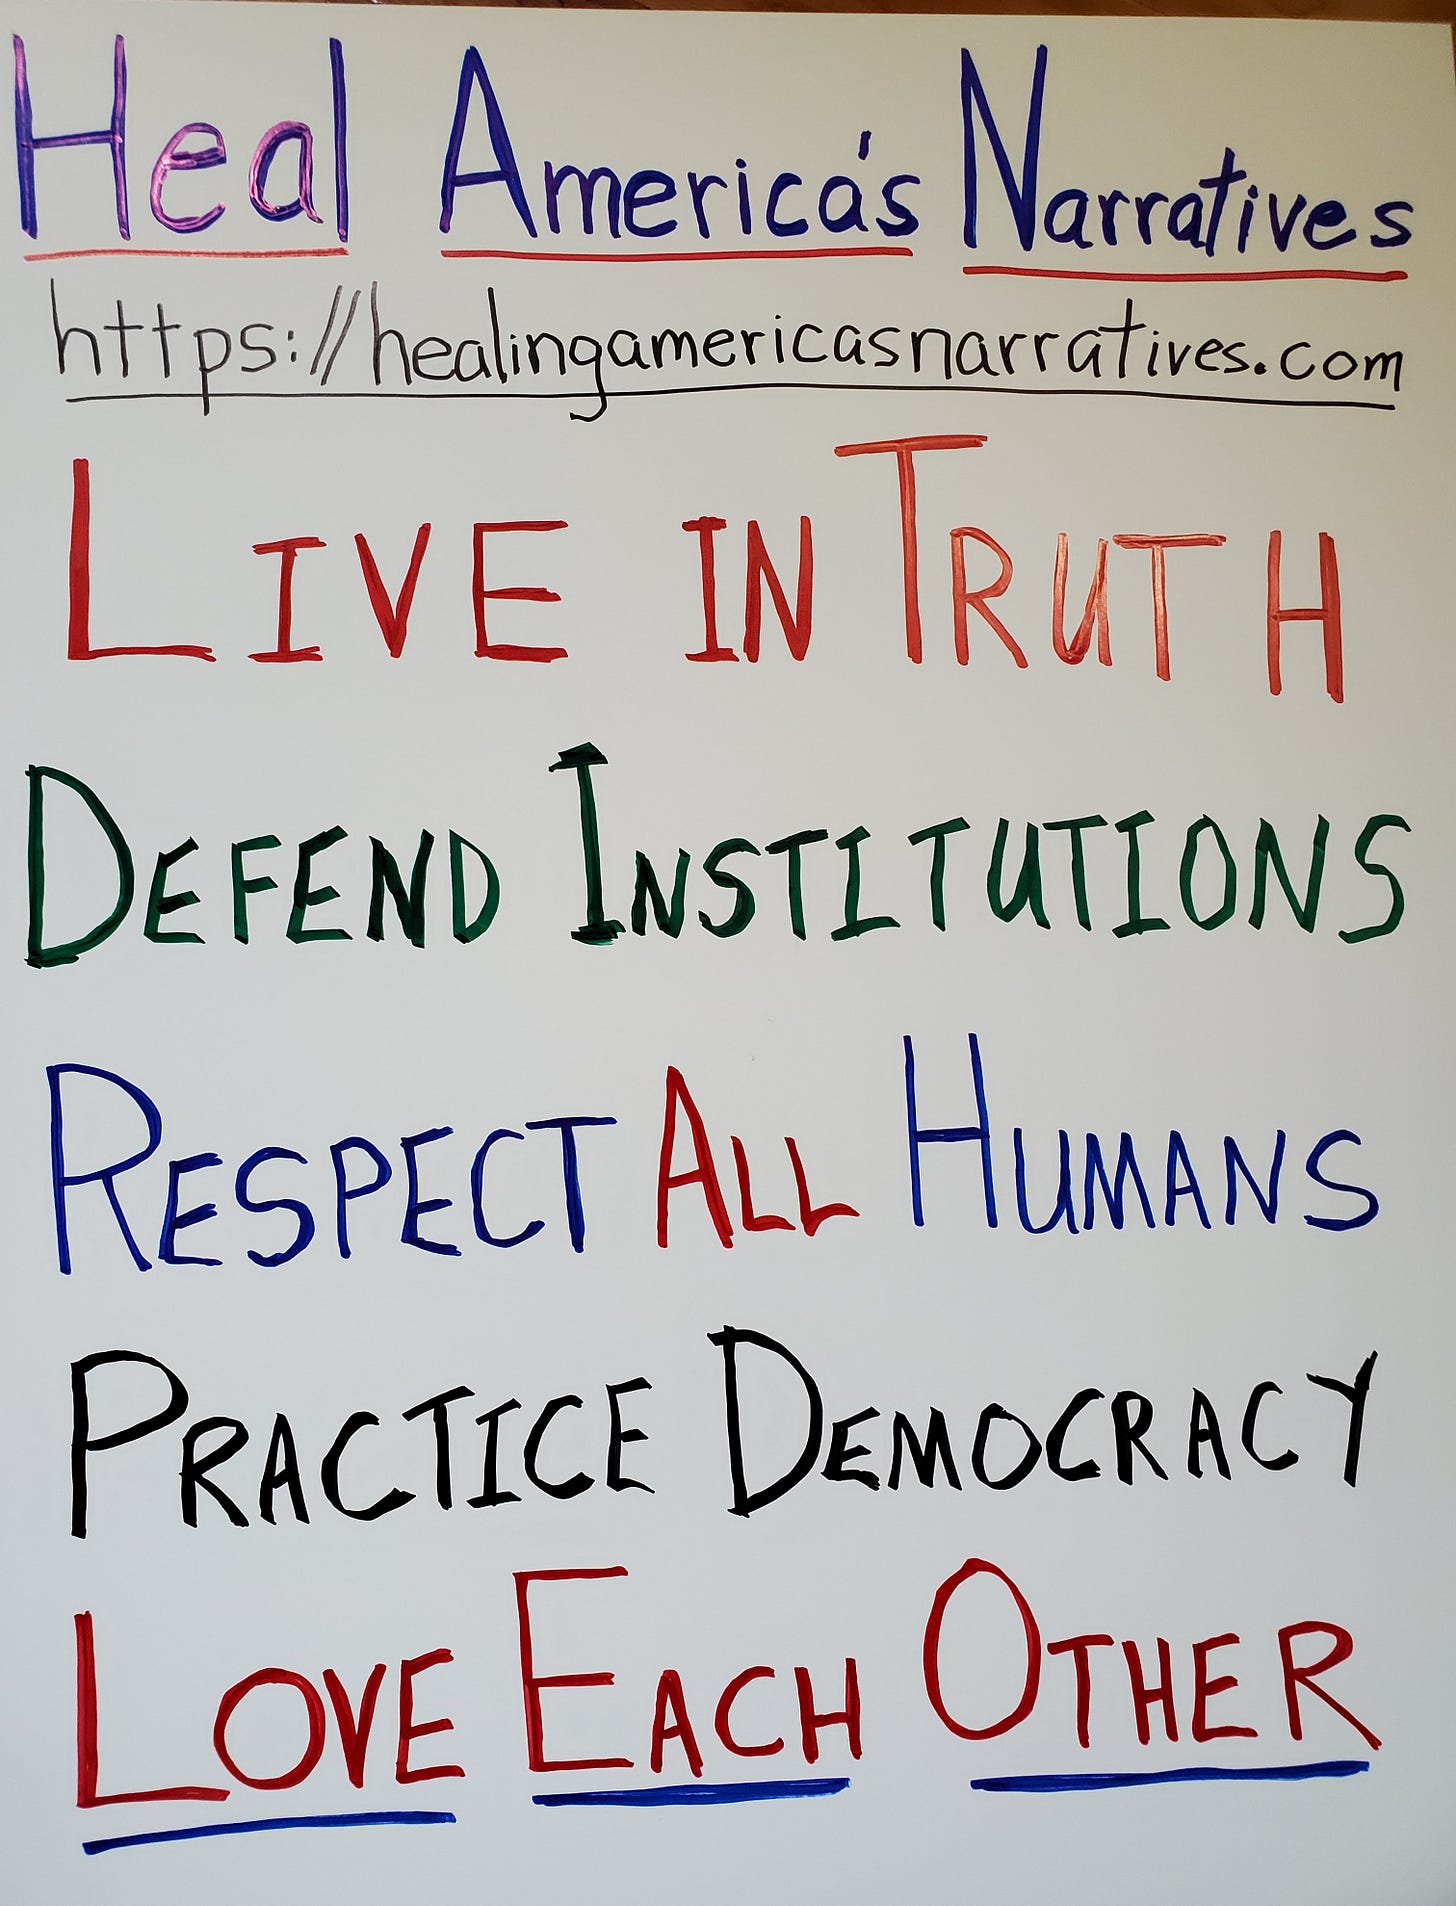 Heal America's Narratives
https://healingamericasnarratives.com
LIVE IN TRUTH
DEFEND INSTITUTIONS
RESPECT ALL HUMANS
PRACTICE DEMOCRACY
LOVE EACH OTHER